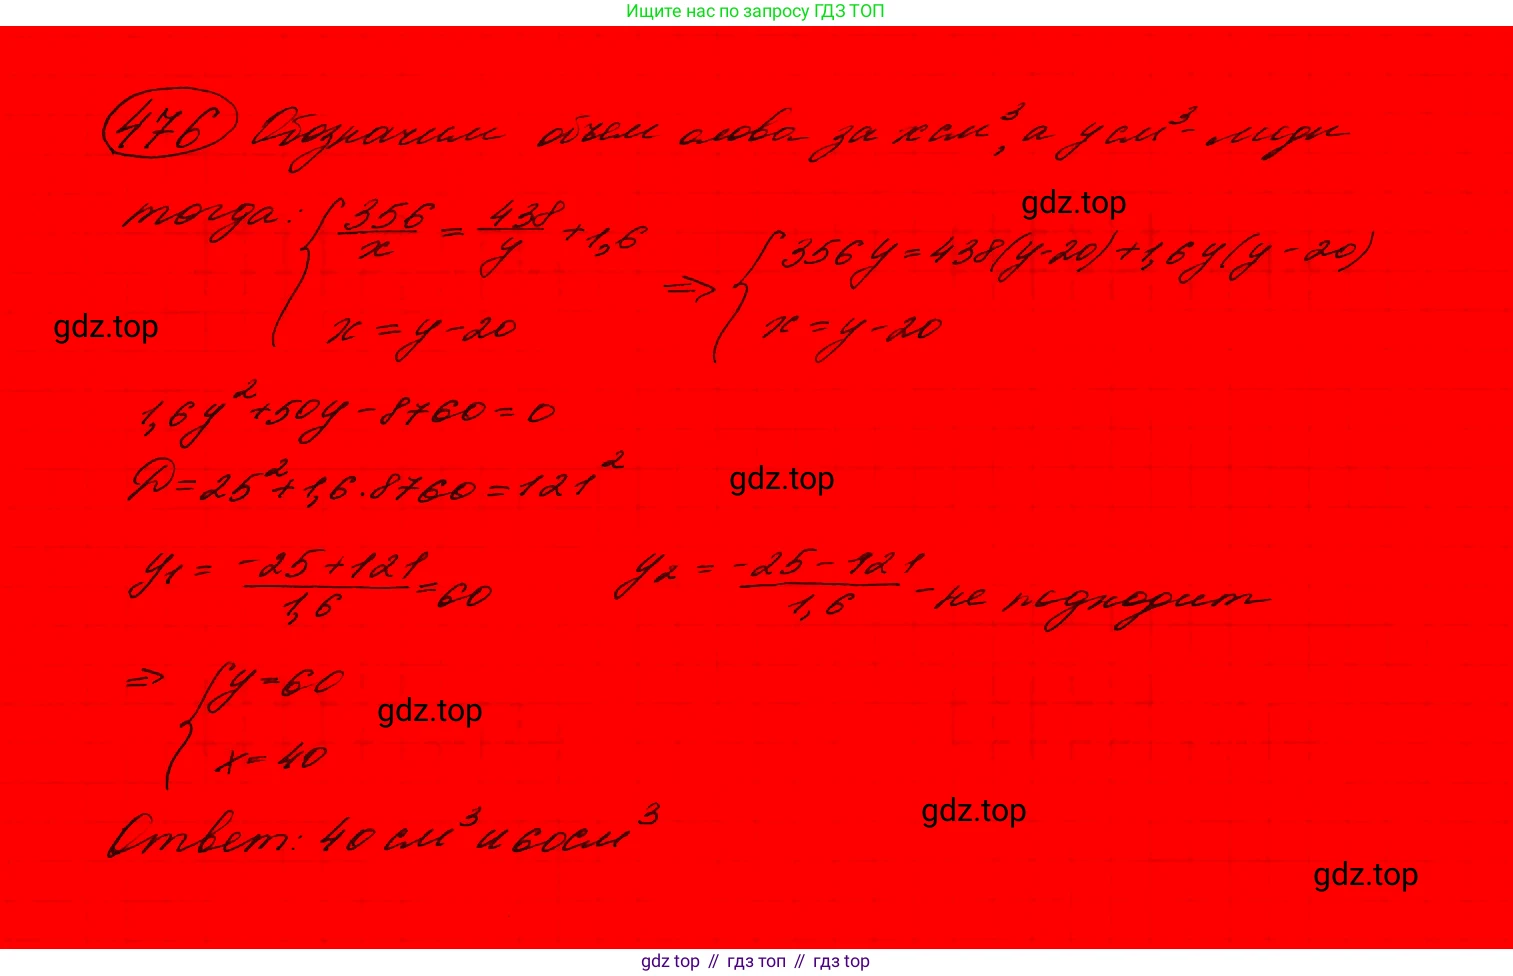 Ищите нас по запросу ГДЗ ТОП
476 Обозначим объем олова за x см³, а y см³ - меди
gdz.top
тогда: { 356/x = 438/y + 1,6 ⇒ { 356y = 438(y-20) + 1,6y(y-20)
x = y-20 x = y-20
gdz.top
1,6y² + 50y - 8760 = 0
D = 25² + 1,6·8760 = 121²
gdz.top
y₁ = (-25+121)/1,6 = 60 y₂ = (-25-121)/1,6 - не подходит
⇒ { y = 60
gdz.top
x = 40
gdz.top
Ответ: 40 см³ и 60 см³
gdz.top
gdz top // гдз топ // гдз top